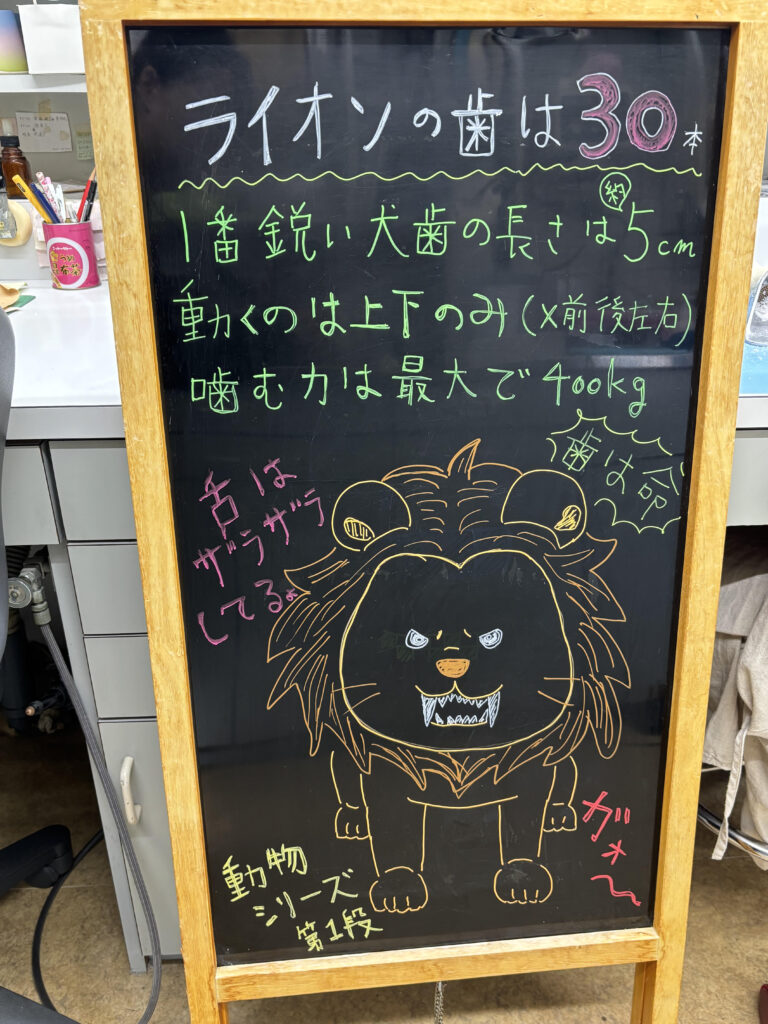 ライオンの歯は30本
1番鋭い犬歯の長さは約5cm
動くのは上下のみ(×前後左右)
噛む力は最大で400kg
歯は命
舌は
ザラザラ
してるよ
ガォ〜
動物
シリーズ
第1段